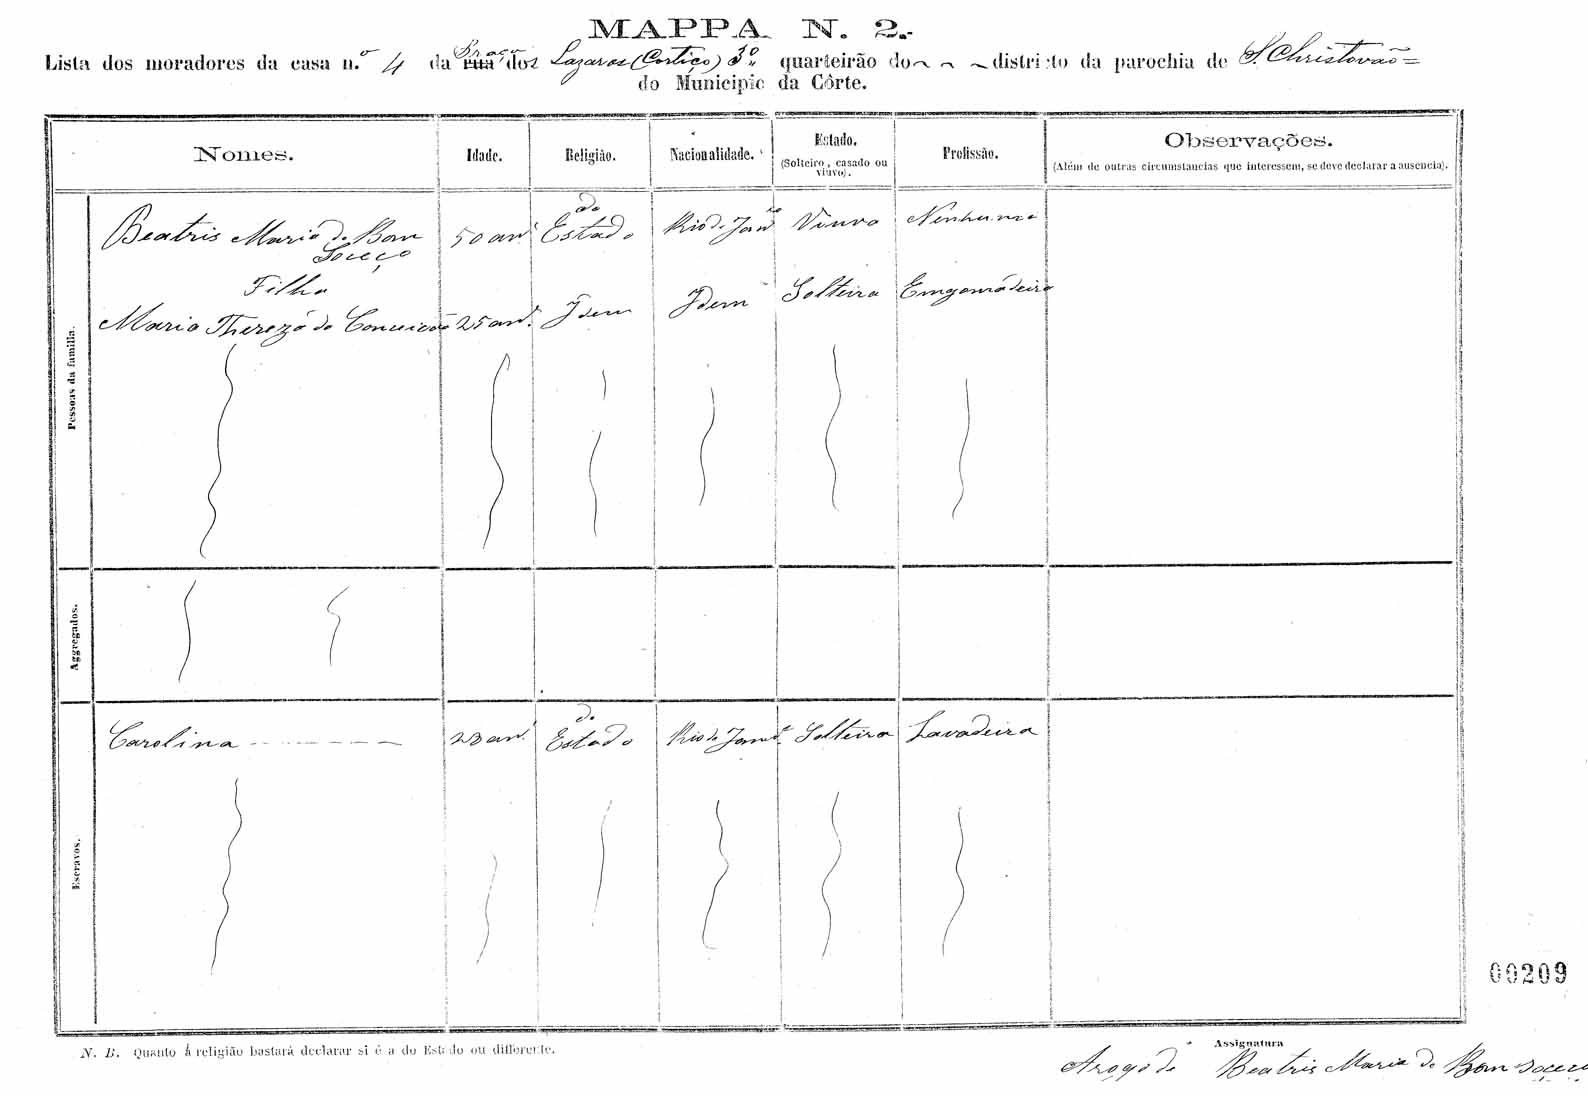 MAPPA N. 2.
Lista dos moradores da casa n.º 4 da rua dos Lazaros (Cortiço) 3º quarteirão do districto da parochia de S. Christovão
do Municipio da Côrte.
Nomes. Idade. Religião. Nacionalidade. Estado. (Solteiro, casado ou viuvo). Profissão. Observações. (Além de outras circumstancias que interessem, se deve declarar a ausencia).
Pessoas da familia.
Beatris Maria do Bom Soceço 50 an.s do Estado Rio de Janro Viuva Nenhuma
Filha
Maria Thereza da Conceicão 25 an.s Idem Idem Solteira Emgomadeira
Aggregados.
Escravos.
Carolina 23 an.s do Estado Rio de Janro Solteira Lavadeira
00209
N. B. Quanto á religião bastará declarar si é a do Estado ou differente.
Assignatura
Arogo de Beatris Maria do Bom Soceço